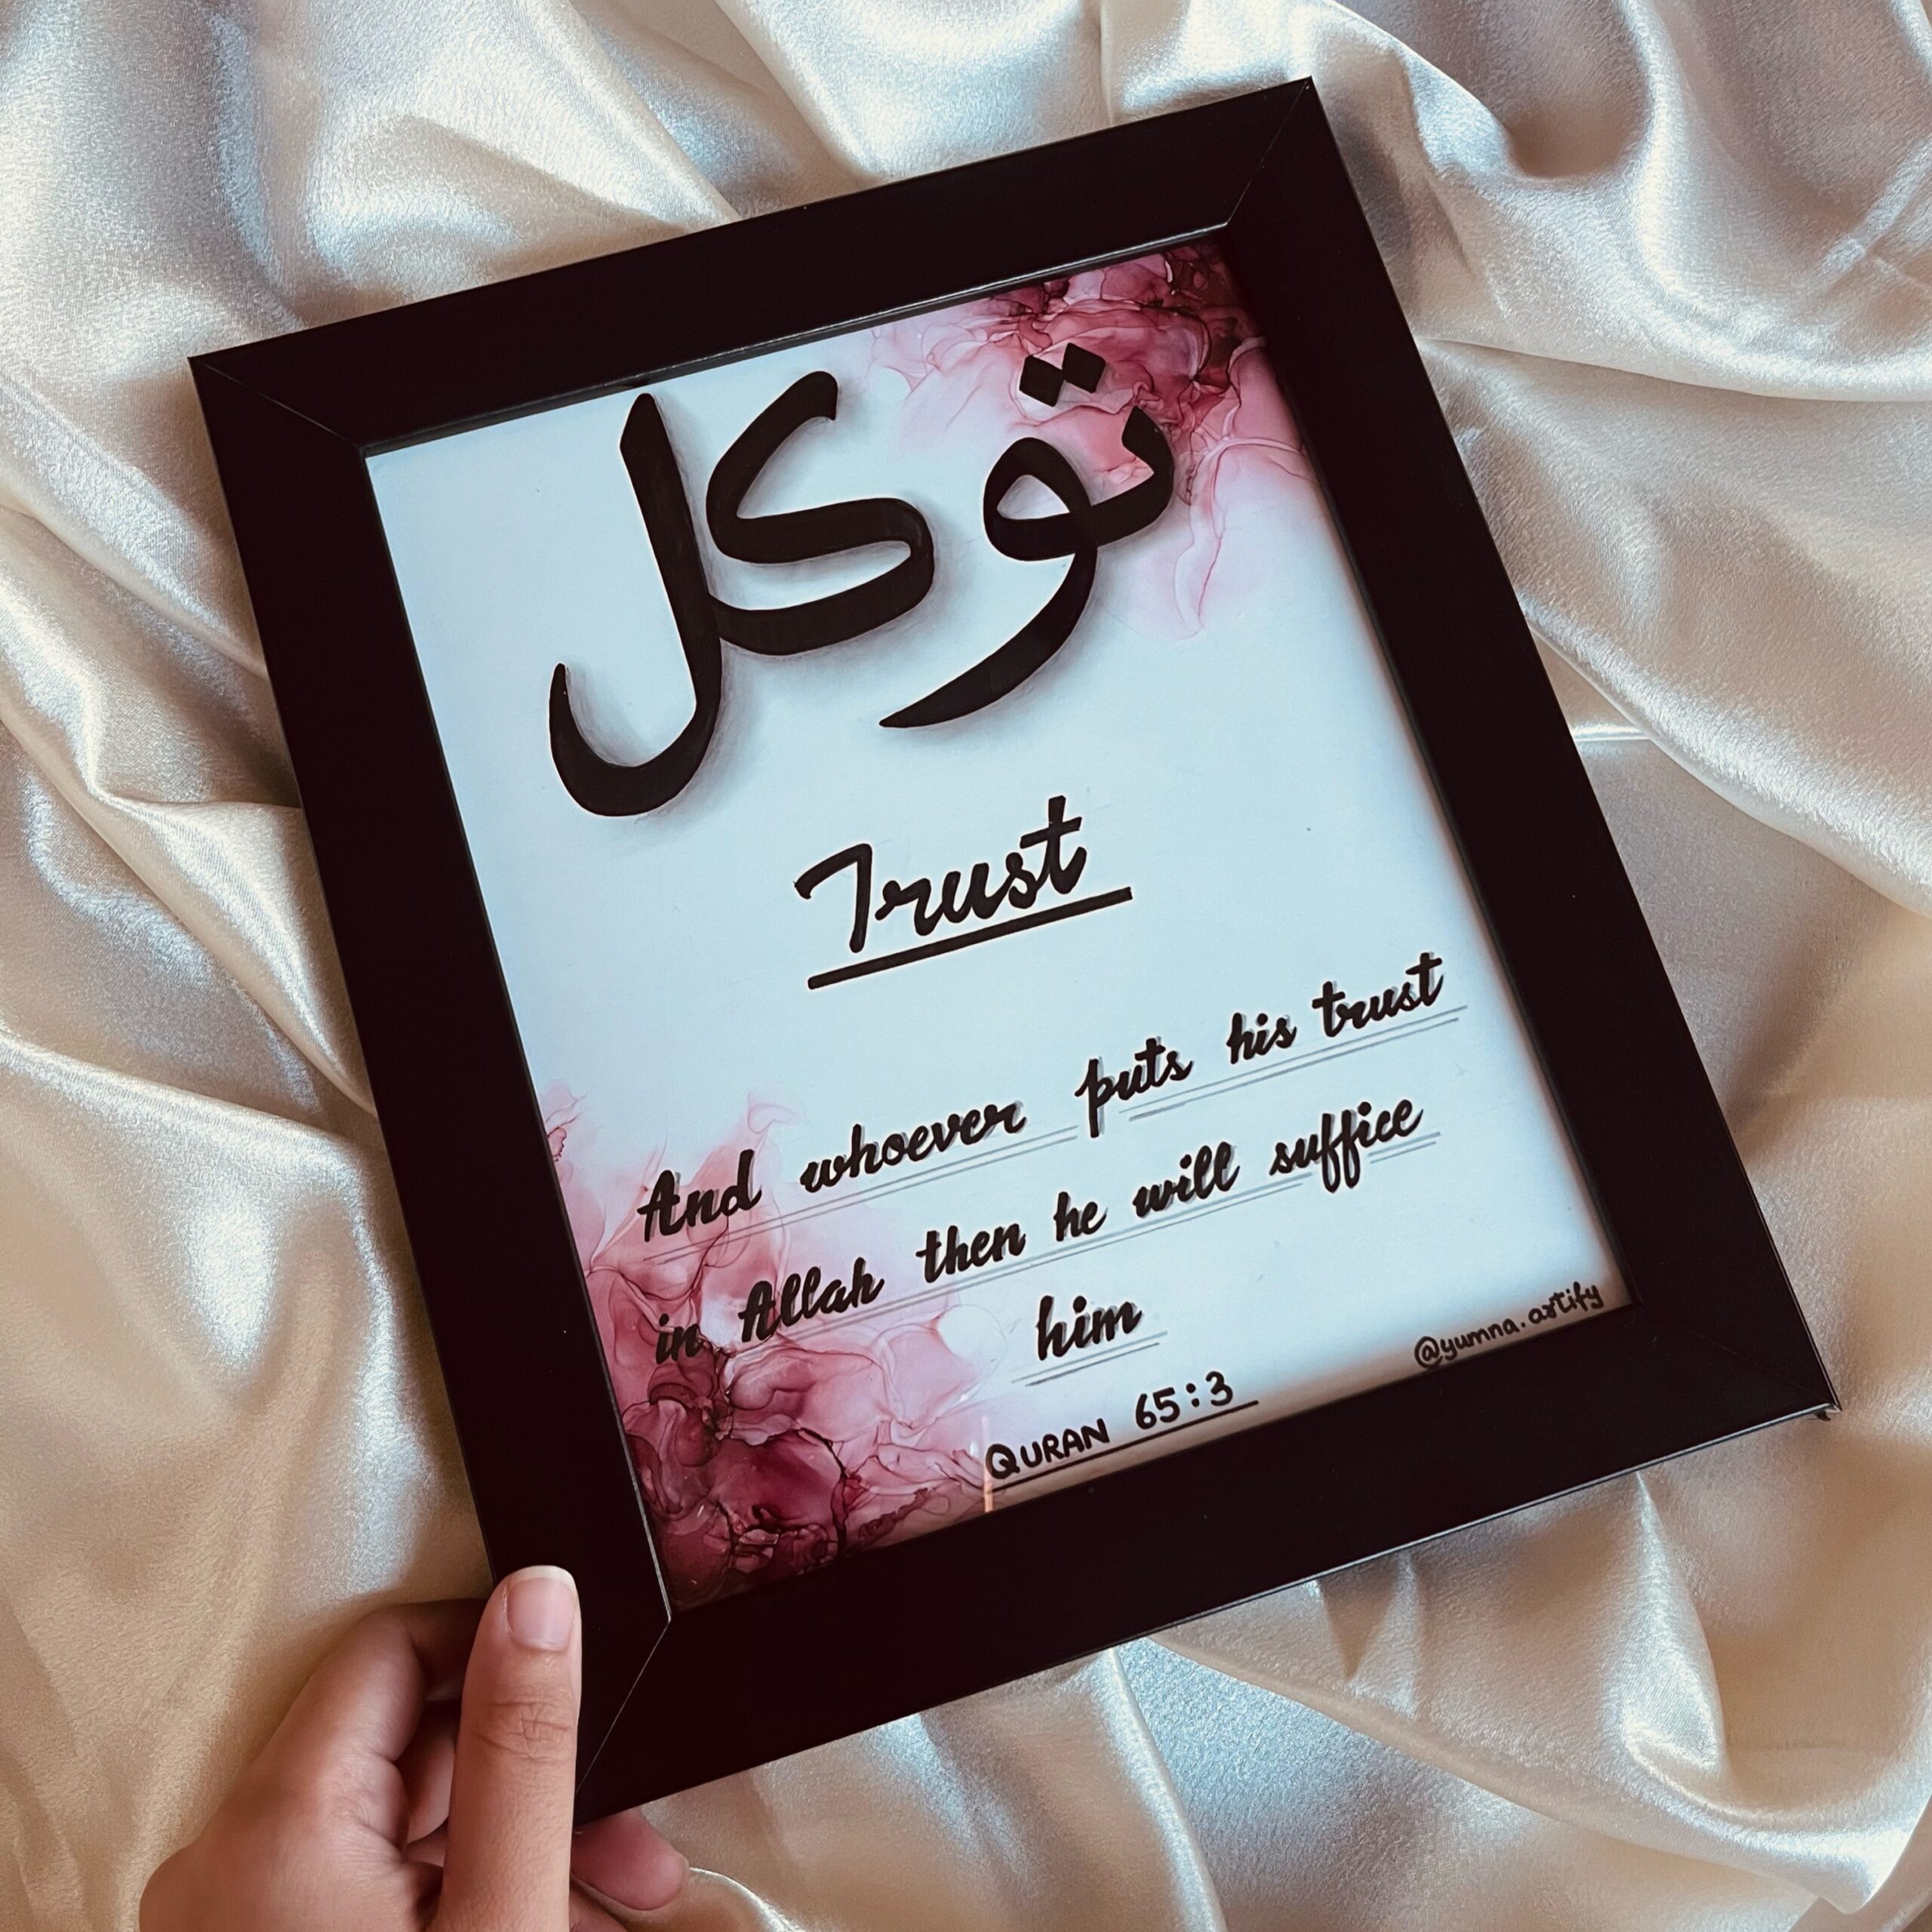 توكل
Trust
And whoever puts his trust
in Allah then he will suffice
him
QURAN 65:3
@yumna.artify